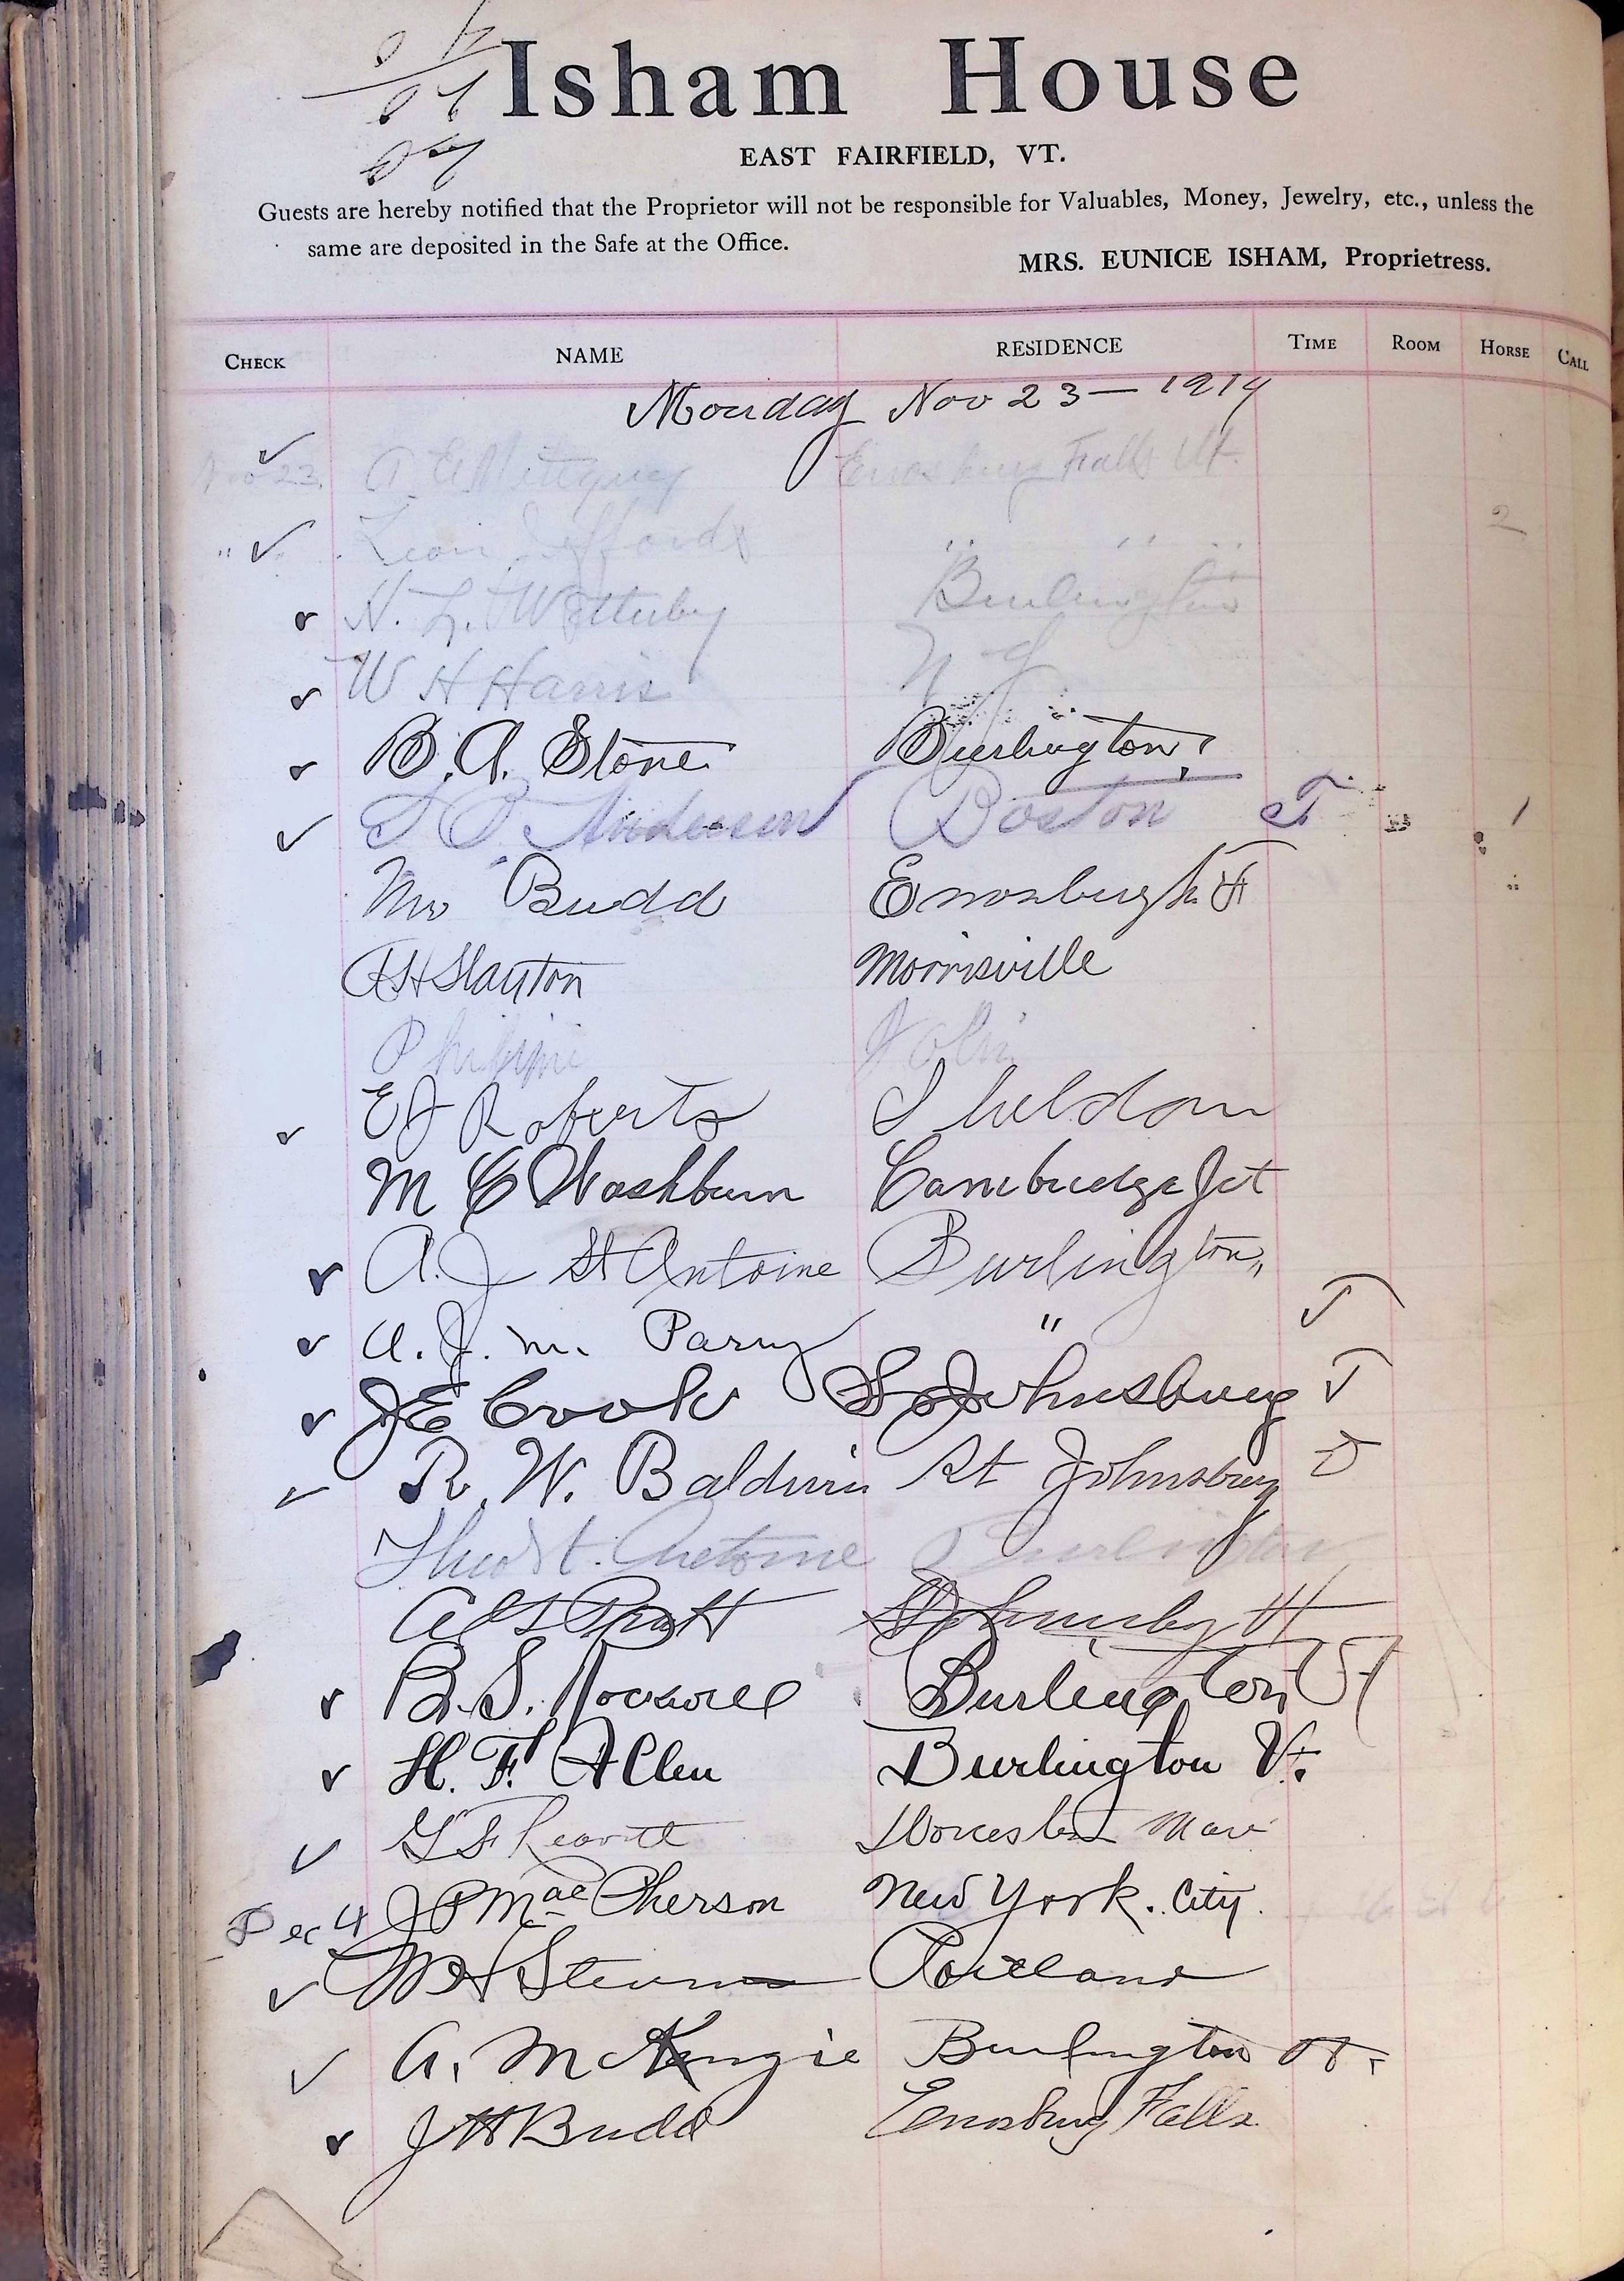 Isham House
EAST FAIRFIELD, VT.
Guests are hereby notified that the Proprietor will not be responsible for Valuables, Money, Jewelry, etc., unless the
same are deposited in the Safe at the Office.
MRS. EUNICE ISHAM, Proprietress.
CHECK NAME RESIDENCE TIME ROOM HORSE CALL
Monday Nov 23 — 1914
Nov 23. Enosburg Falls Vt.
" Leon Jeffords " " " 2
N. L. Burlington
W H Harris N
B. A. Stone Burlington,
Anderson Boston 1
Mr Budd Enosburgh F
Slayton Morrisville
E J Roberts Sheldon
M C Washburn Cambridge Jct
A. J St Antoine Burlington,,
A. J. M. Parry " T
J E Cook St Johnsbury T
R. W. Baldwin St Johnsbury D
St. Antoine Burlington
Pratt St Johnsbury Vt
B. S. Burlington
H. F. Allen Burlington Vt.
G F Leavitt Worcester Mass
Dec 4 J P MacPherson New York. City.
Stevens Portland
A. McKenzie Burlington Vt.
J H Budd Enosburg Falls